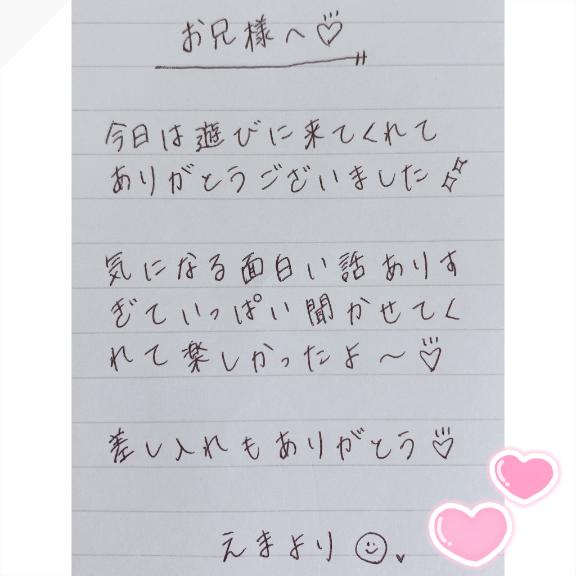 お兄様へ♡
今日は遊びに来てくれて
ありがとうございました
気になる面白い話ありす
ぎていっぱい聞かせてく
れて楽しかったよ〜♡
差し入れもありがとう♡
えまより